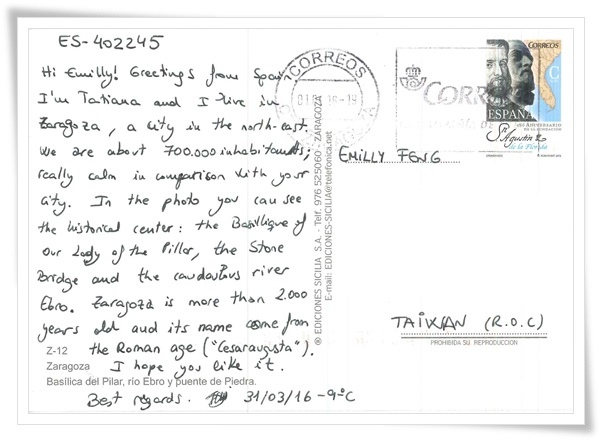 ES-402245
Hi Emilly! Greetings from Spain
I'm Tatiana and I live in
Zaragoza, a city in the north-east.
We are about 700.000 inhabitants,
really calm in comparison with your
city. In the photo you can see
the historical center: the Basilique of
Our Lady of the Pillar, the Stone
Bridge and the caudalous river
Ebro. Zaragoza is more than 2.000
years old and its name come from
the Roman age ("Cesaraugusta").
I hope you like it.
Best regards. 31/03/16 -9ºC
Z-12
Zaragoza
Basílica del Pilar, río Ebro y puente de Piedra.
® EDICIONES SICILIA S.A. - Telf. 976 525060 - ZARAGOZA
E-mail: EDICIONES-SICILIA@telefonica.net
CORREOS
CORREOS
CORREOS
ESPAÑA
S. Agustín
de la Florida
EMILLY FENG
TAIWAN (R.O.C)
PROHIBIDA SU REPRODUCCION